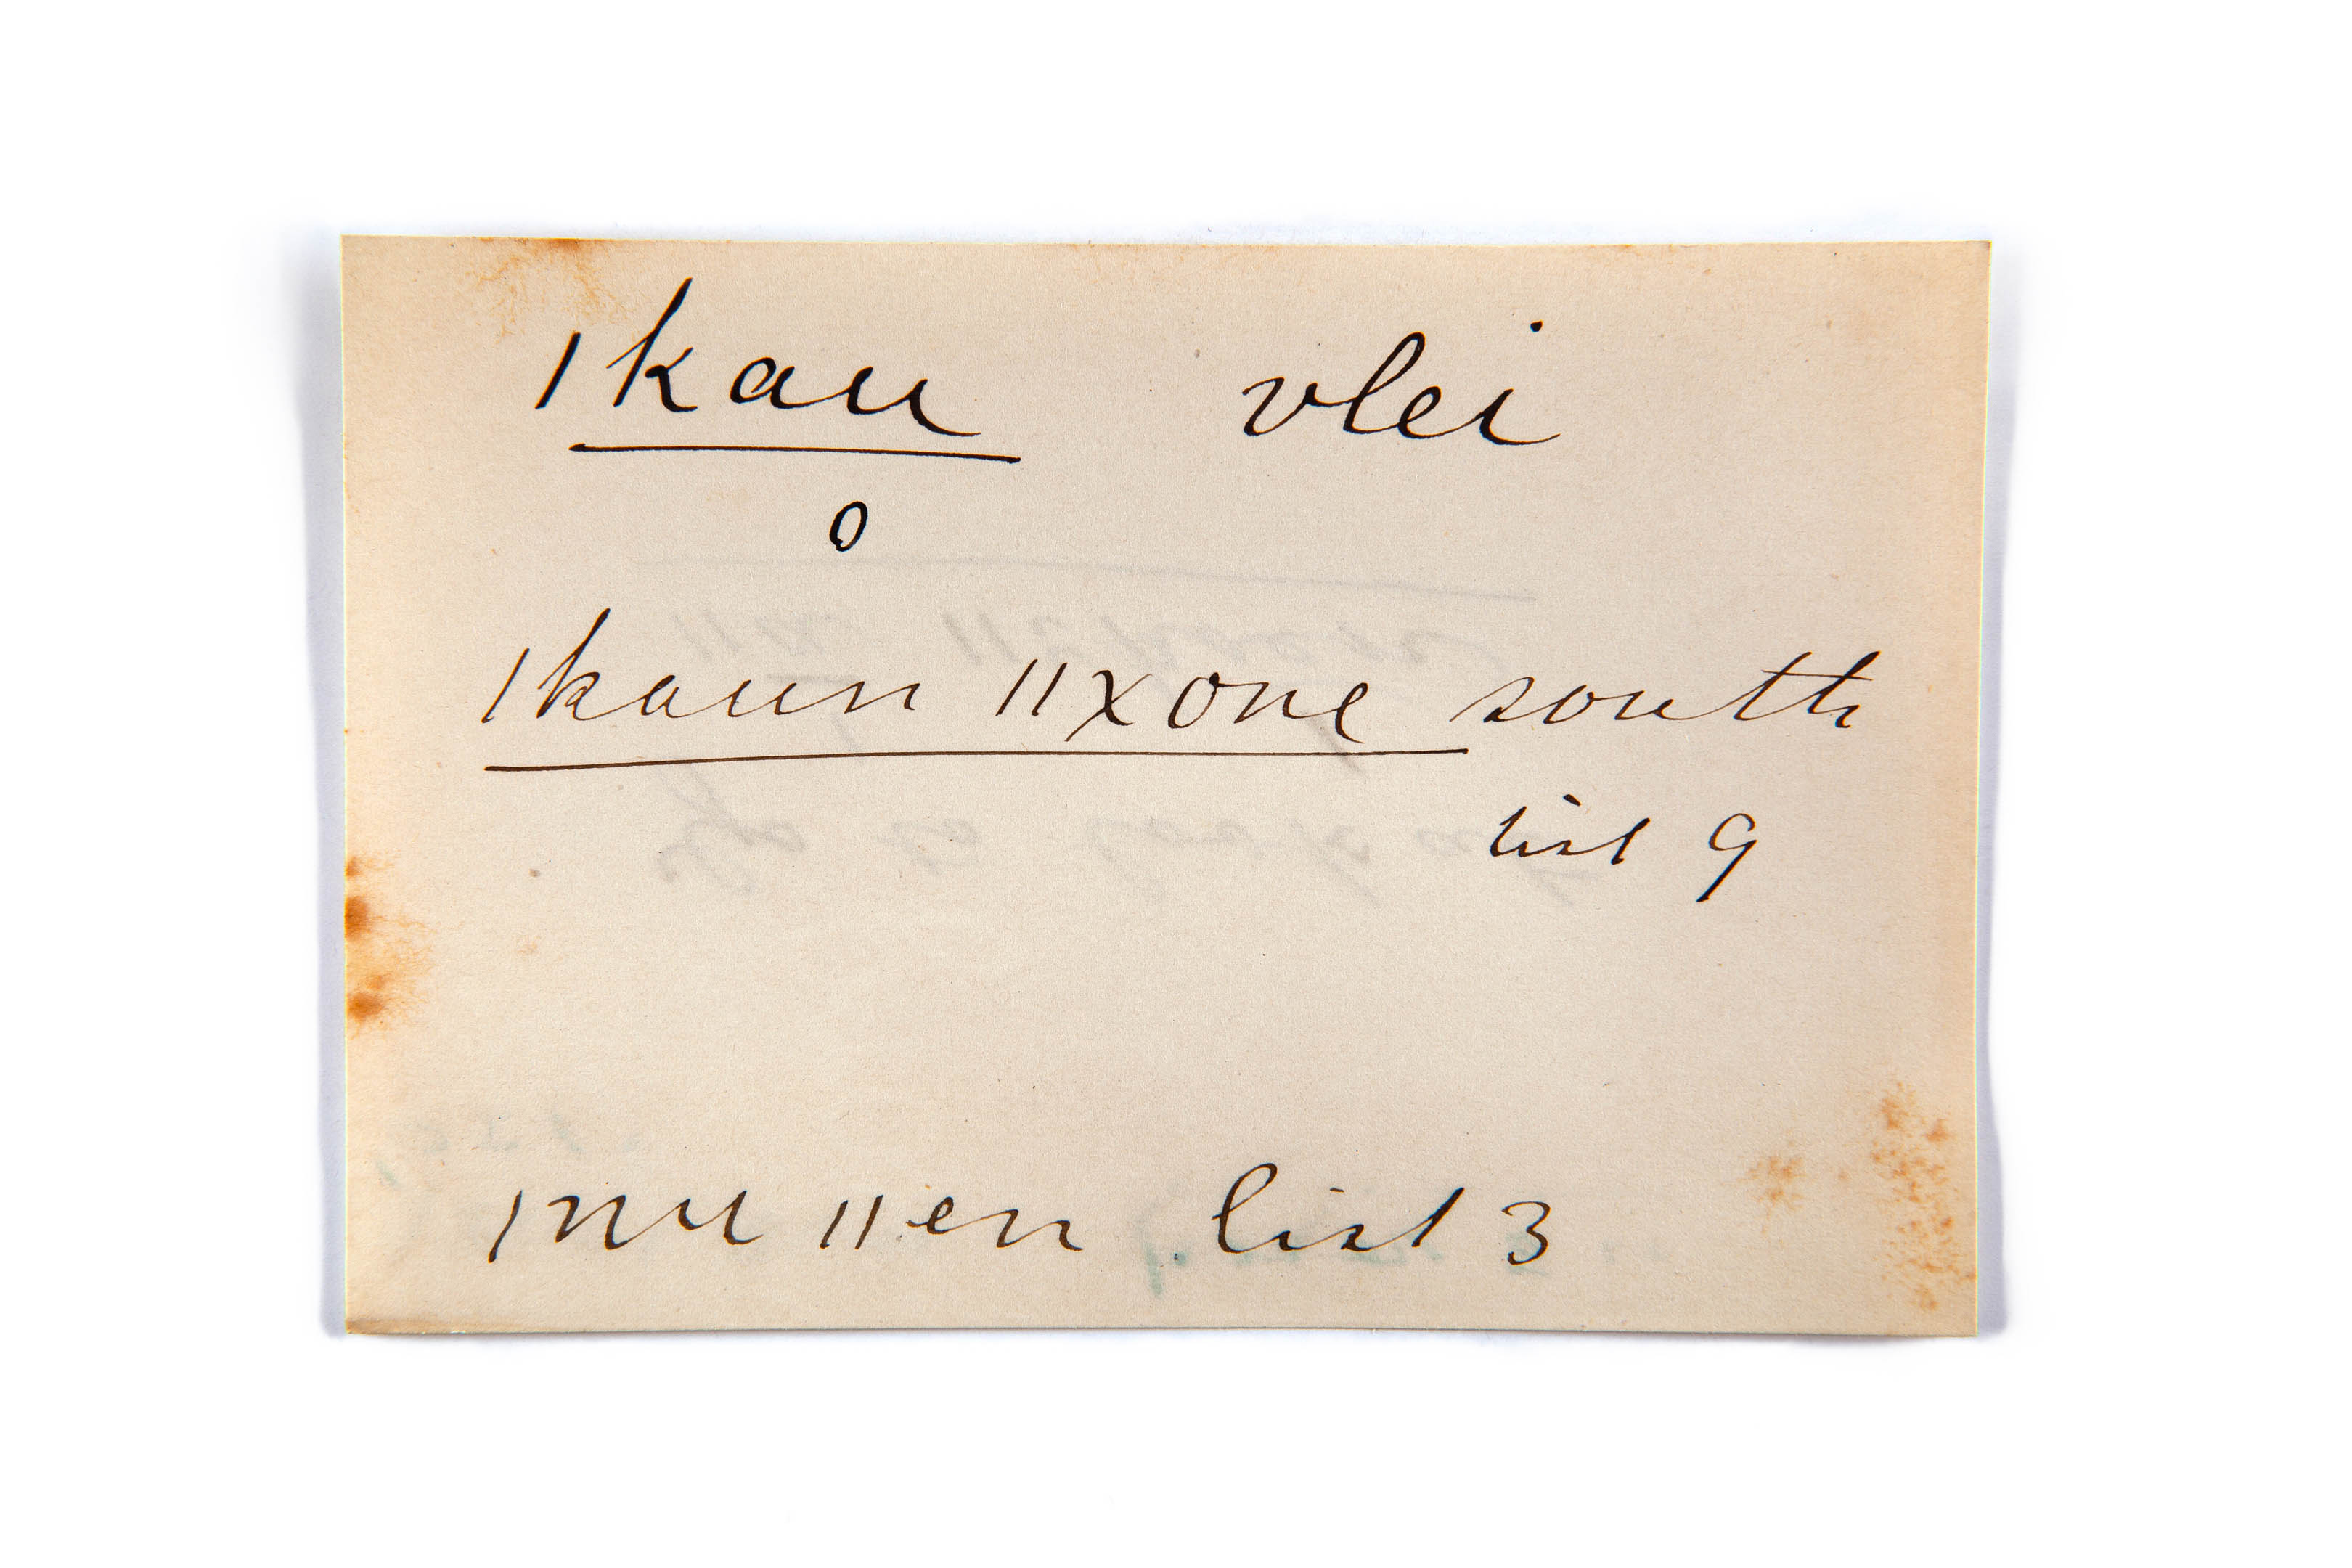 |kau vlei
o
|kaun ||xone south
list 9
|nu ||en list 3